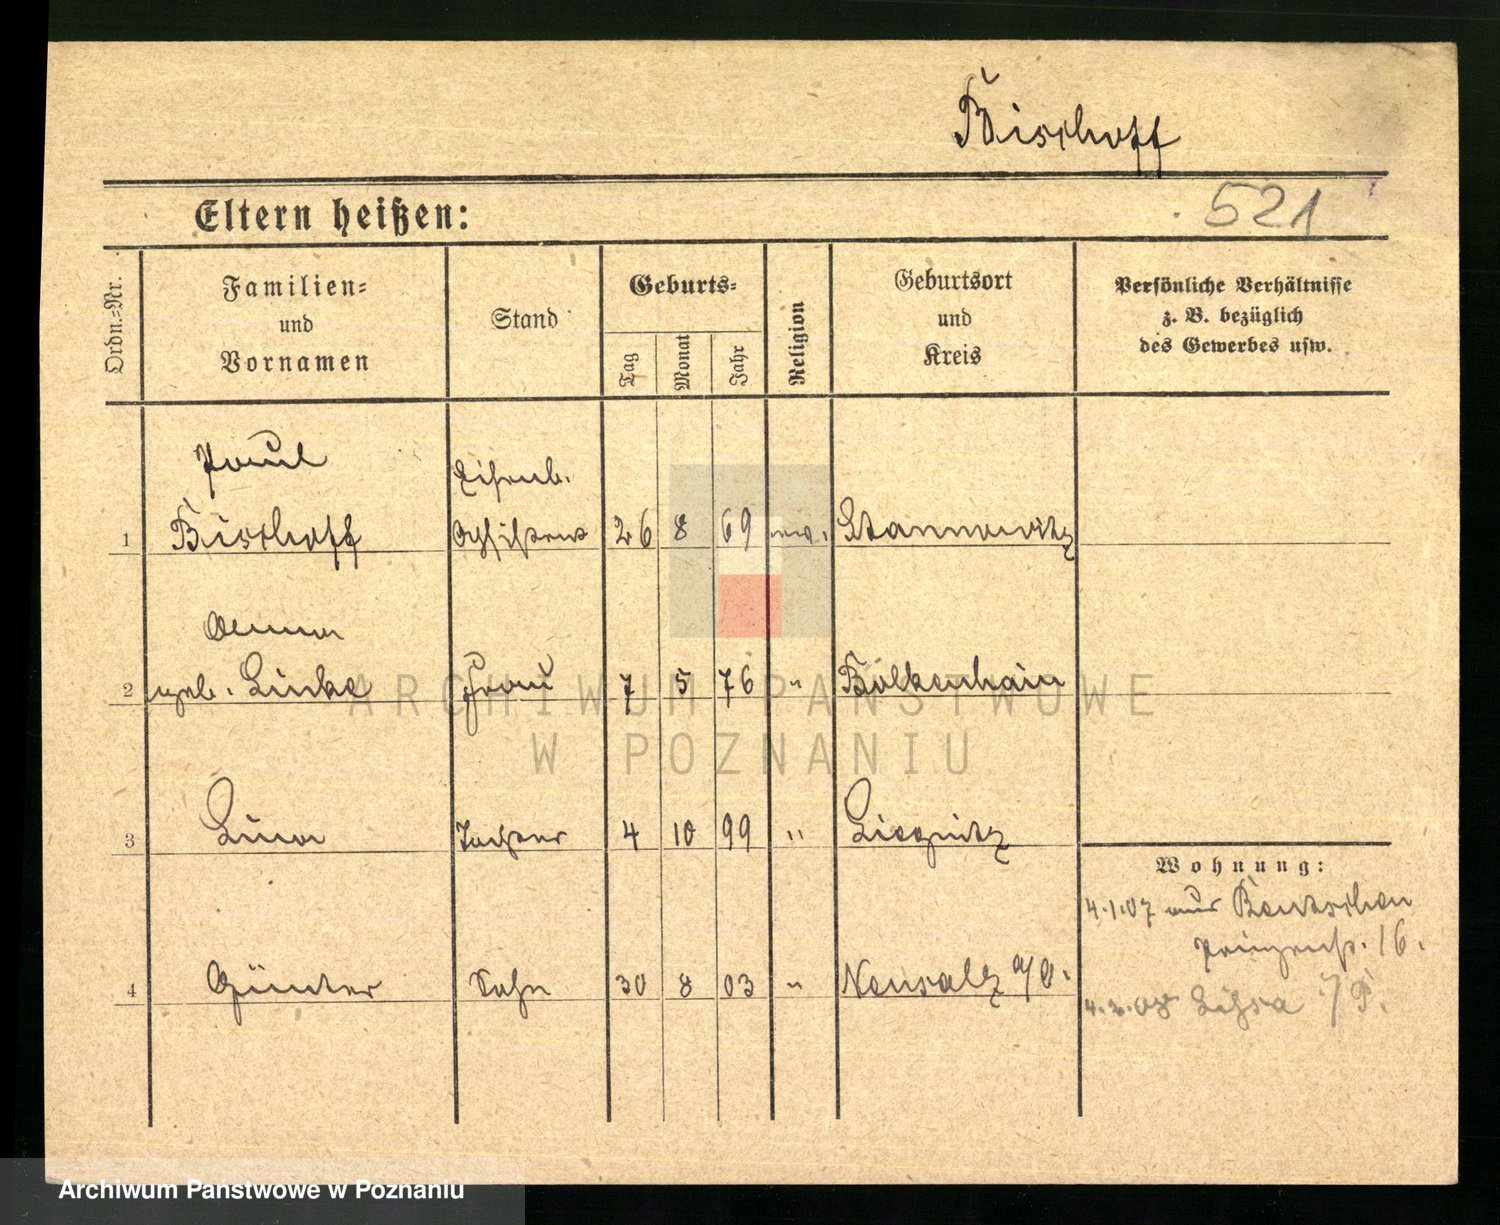 Bischoff
521
Eltern heißen:
Ordn.-Nr.
Familien-
und
Vornamen
Stand
Geburts-
Tag
Monat
Jahr
Religion
Geburtsort
und
Kreis
Persönliche Verhältnisse
z. B. bezüglich
des Gewerbes usw.
Paul Eisenb.
1 Bischoff 26 8 69 ev. Stannowitz
Anna
2 geb. Linke Frau 7 5 76 " Bolkenhain
3 Tochter 4 10 99 " Liegnitz
Wohnung:
4.1.07 aus Bentschen
Prinzenstr. 16.
4 Günter Sohn 30 8 03 " Neusalz a/O.
4.2.08 Lissa i/P.
ARCHIWUM PAŃSTWOWE
W POZNANIU
Archiwum Państwowe w Poznaniu